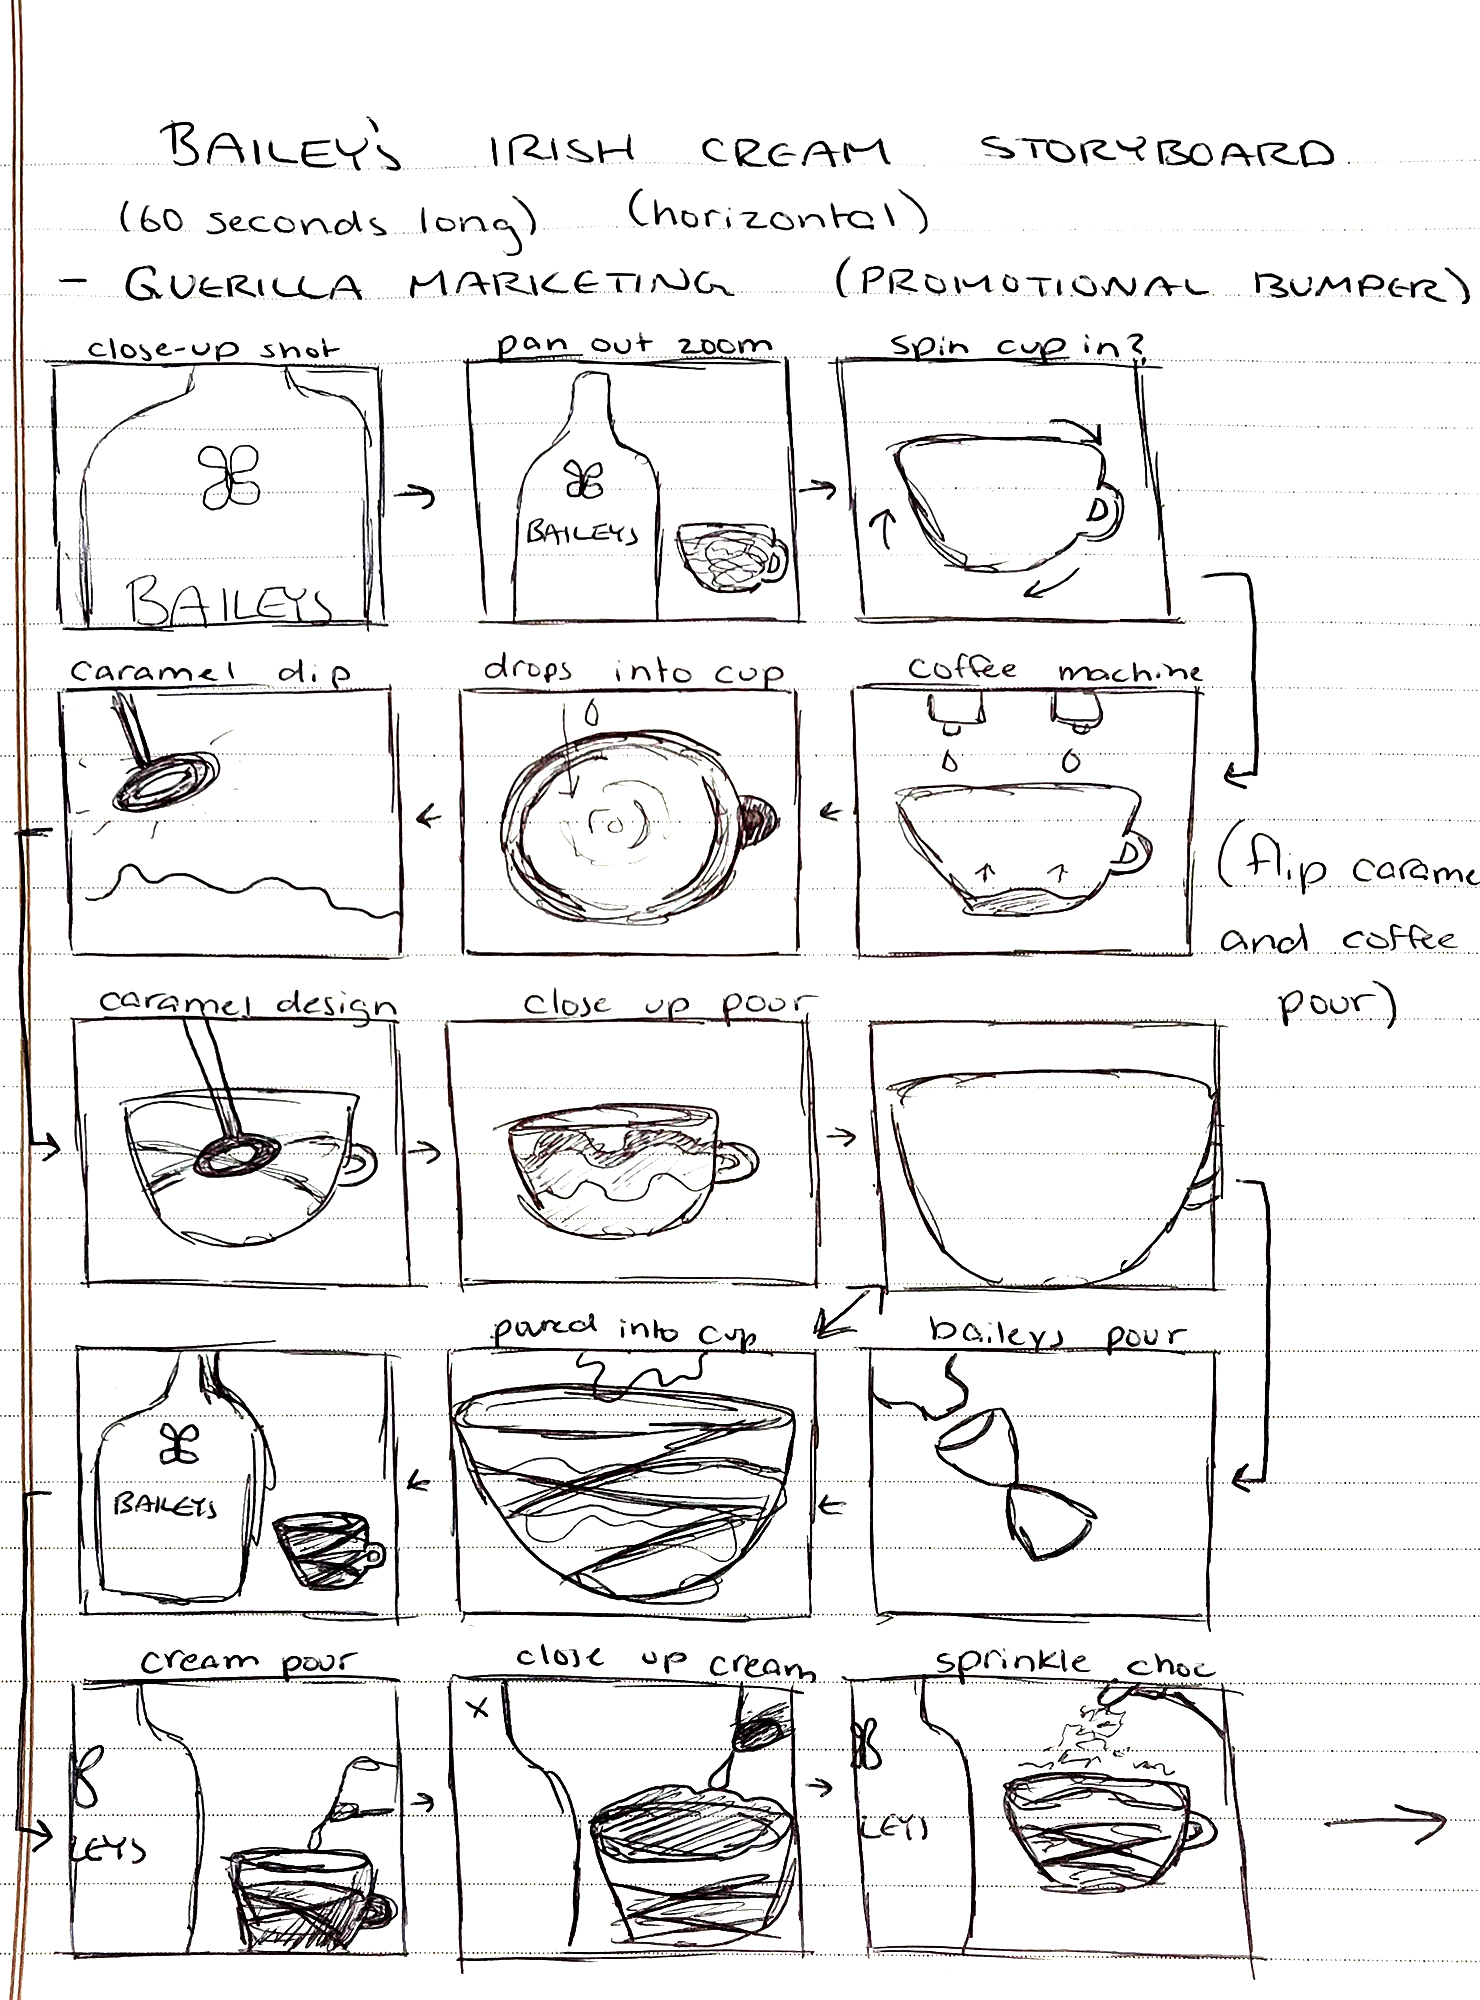 BAILEY'S IRISH CREAM STORYBOARD
(60 seconds long) (horizontal)
- GUERILLA MARKETING (PROMOTIONAL BUMPER)
close-up shot
pan out zoom
spin cup in?
BAILEYS
BAILEYS
caramel dip
drops into cup
coffee machine
(flip carame
and coffee
pour)
caramel design
close up pour
pored into cup
baileys pour
BAILEYS
cream pour
close up cream
sprinkle choc
X
LEYS
LEYS